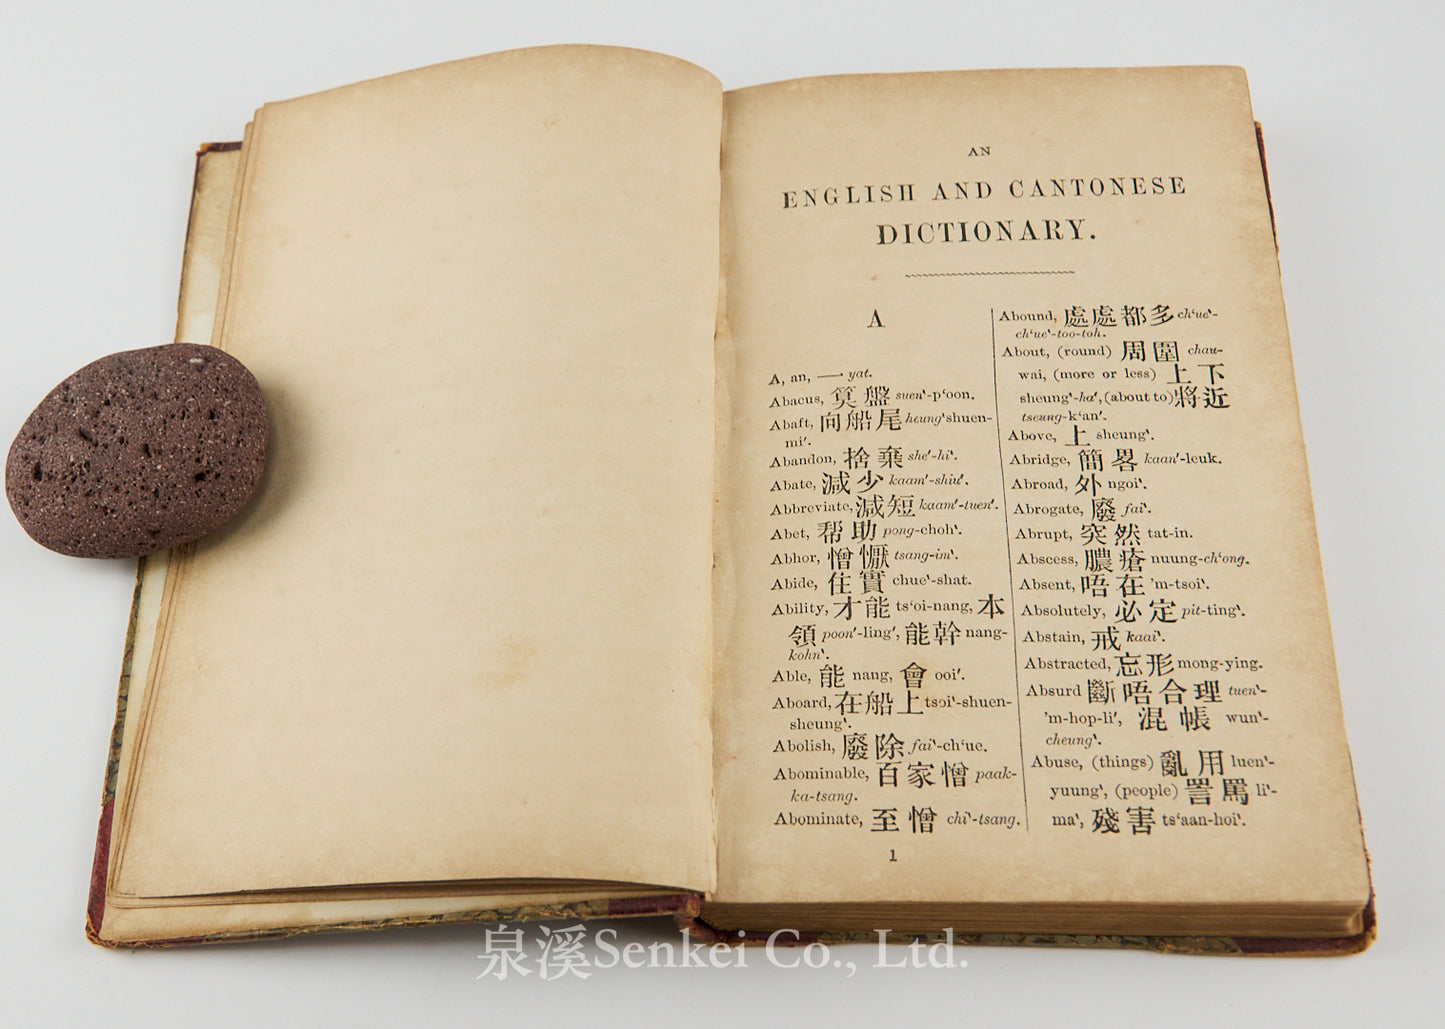 AN
ENGLISH AND CANTONESE
DICTIONARY.
A
A, an, 一 yat.
Abacus, 筭盤 suen‵-p‘oon.
Abaft, 向船尾 heung‵shuen-
mi′.
Abandon, 捨棄 she′-hi‵.
Abate, 減少 kaam′-shiu′.
Abbreviate, 減短 kaam′-tuen′.
Abet, 帮助 pong-choh‵.
Abhor, 憎懨 tsang-im‵.
Abide, 住實 chue‵-shat.
Ability, 才能 ts‘oi-nang, 本
領 poon′-ling′, 能幹 nang-
kohn‵.
Able, 能 nang, 會 ooi′.
Aboard, 在船上 tsoi‵-shuen-
sheung‵.
Abolish, 廢除 fai‵-ch‘ue.
Abominable, 百家憎 paak-
ka-tsang.
Abominate, 至憎 chi‵-tsang.
Abound, 處處都多 ch‘ue‵-
ch‘ue‵-too-toh.
About, (round) 周圍 chau-
wai, (more or less) 上下
sheung‵-ha′, (about to) 將近
tseung-k‘an′.
Above, 上 sheung‵.
Abridge, 簡畧 kaan′-leuk.
Abroad, 外 ngoi‵.
Abrogate, 廢 fai‵.
Abrupt, 突然 tat-in.
Abscess, 膿瘡 nuung-ch‘ong.
Absent, 唔在 ’m-tsoi‵.
Absolutely, 必定 pit-ting‵.
Abstain, 戒 kaai‵.
Abstracted, 忘形 mong-ying.
Absurd 斷唔合理 tuen‵-
’m-hop-li′, 混帳 wun‵-
cheung‵.
Abuse, (things) 亂用 luen‵-
yuung‵, (people) 詈罵 li‵-
ma‵, 殘害 ts‘aan-hoi‵.
1
泉溪Senkei Co., Ltd.